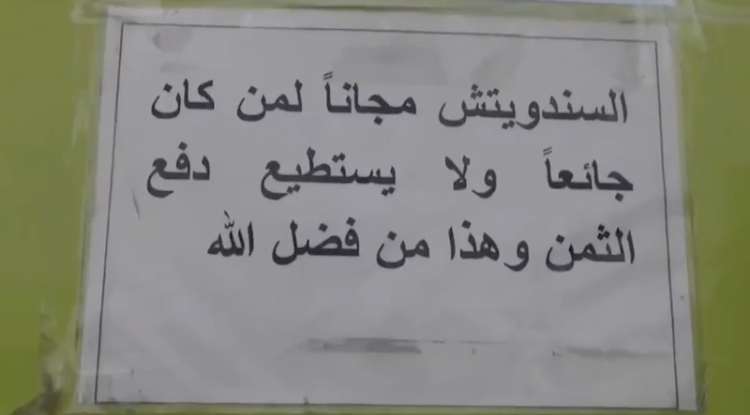 السندويتش مجاناً لمن كان
جائعاً ولا يستطيع دفع
الثمن وهذا من فضل الله